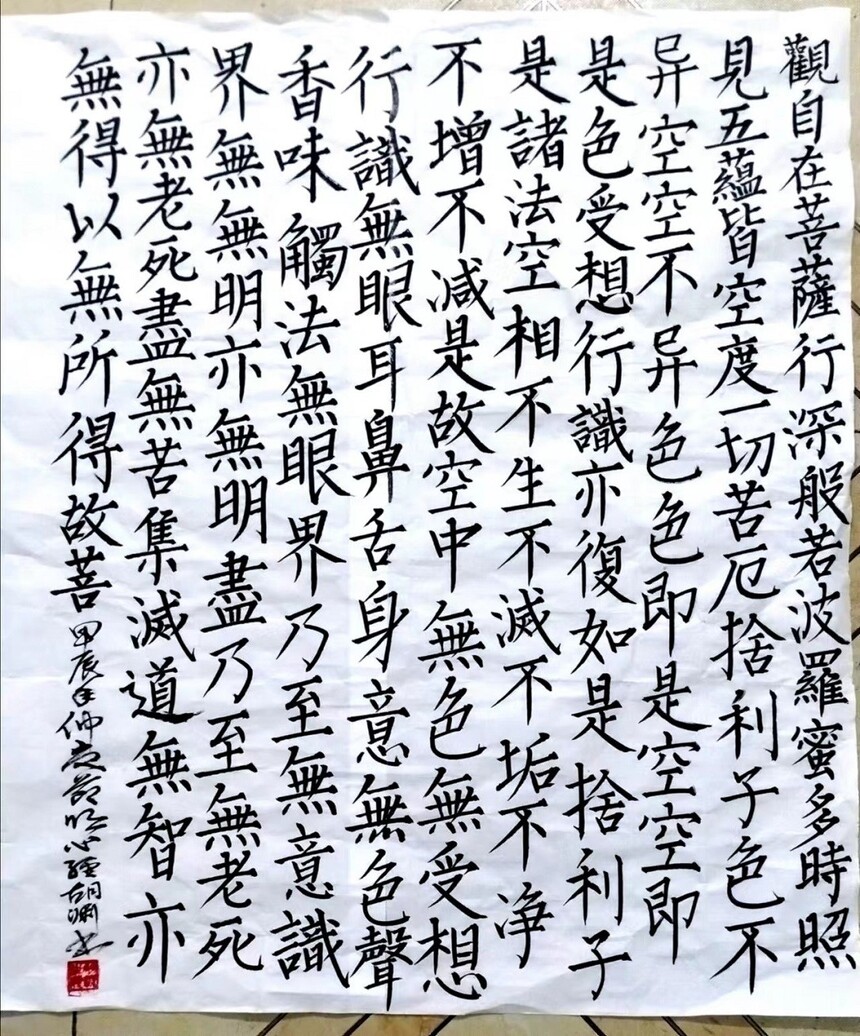 觀自在菩薩行深般若波羅蜜多時照
見五蘊皆空度一切苦厄捨利子色不
异空空不异色色即是空空即
是色受想行識亦復如是捨利子
是諸法空相不生不滅不垢不净
不增不減是故空中無色無受想
行識無眼耳鼻舌身意無色聲
香味觸法無眼界乃至無意識
界無無明亦無無明盡乃至無老死
亦無老死盡無苦集滅道無智亦
無得以無所得故菩
甲辰年仲夏節臨心經胡